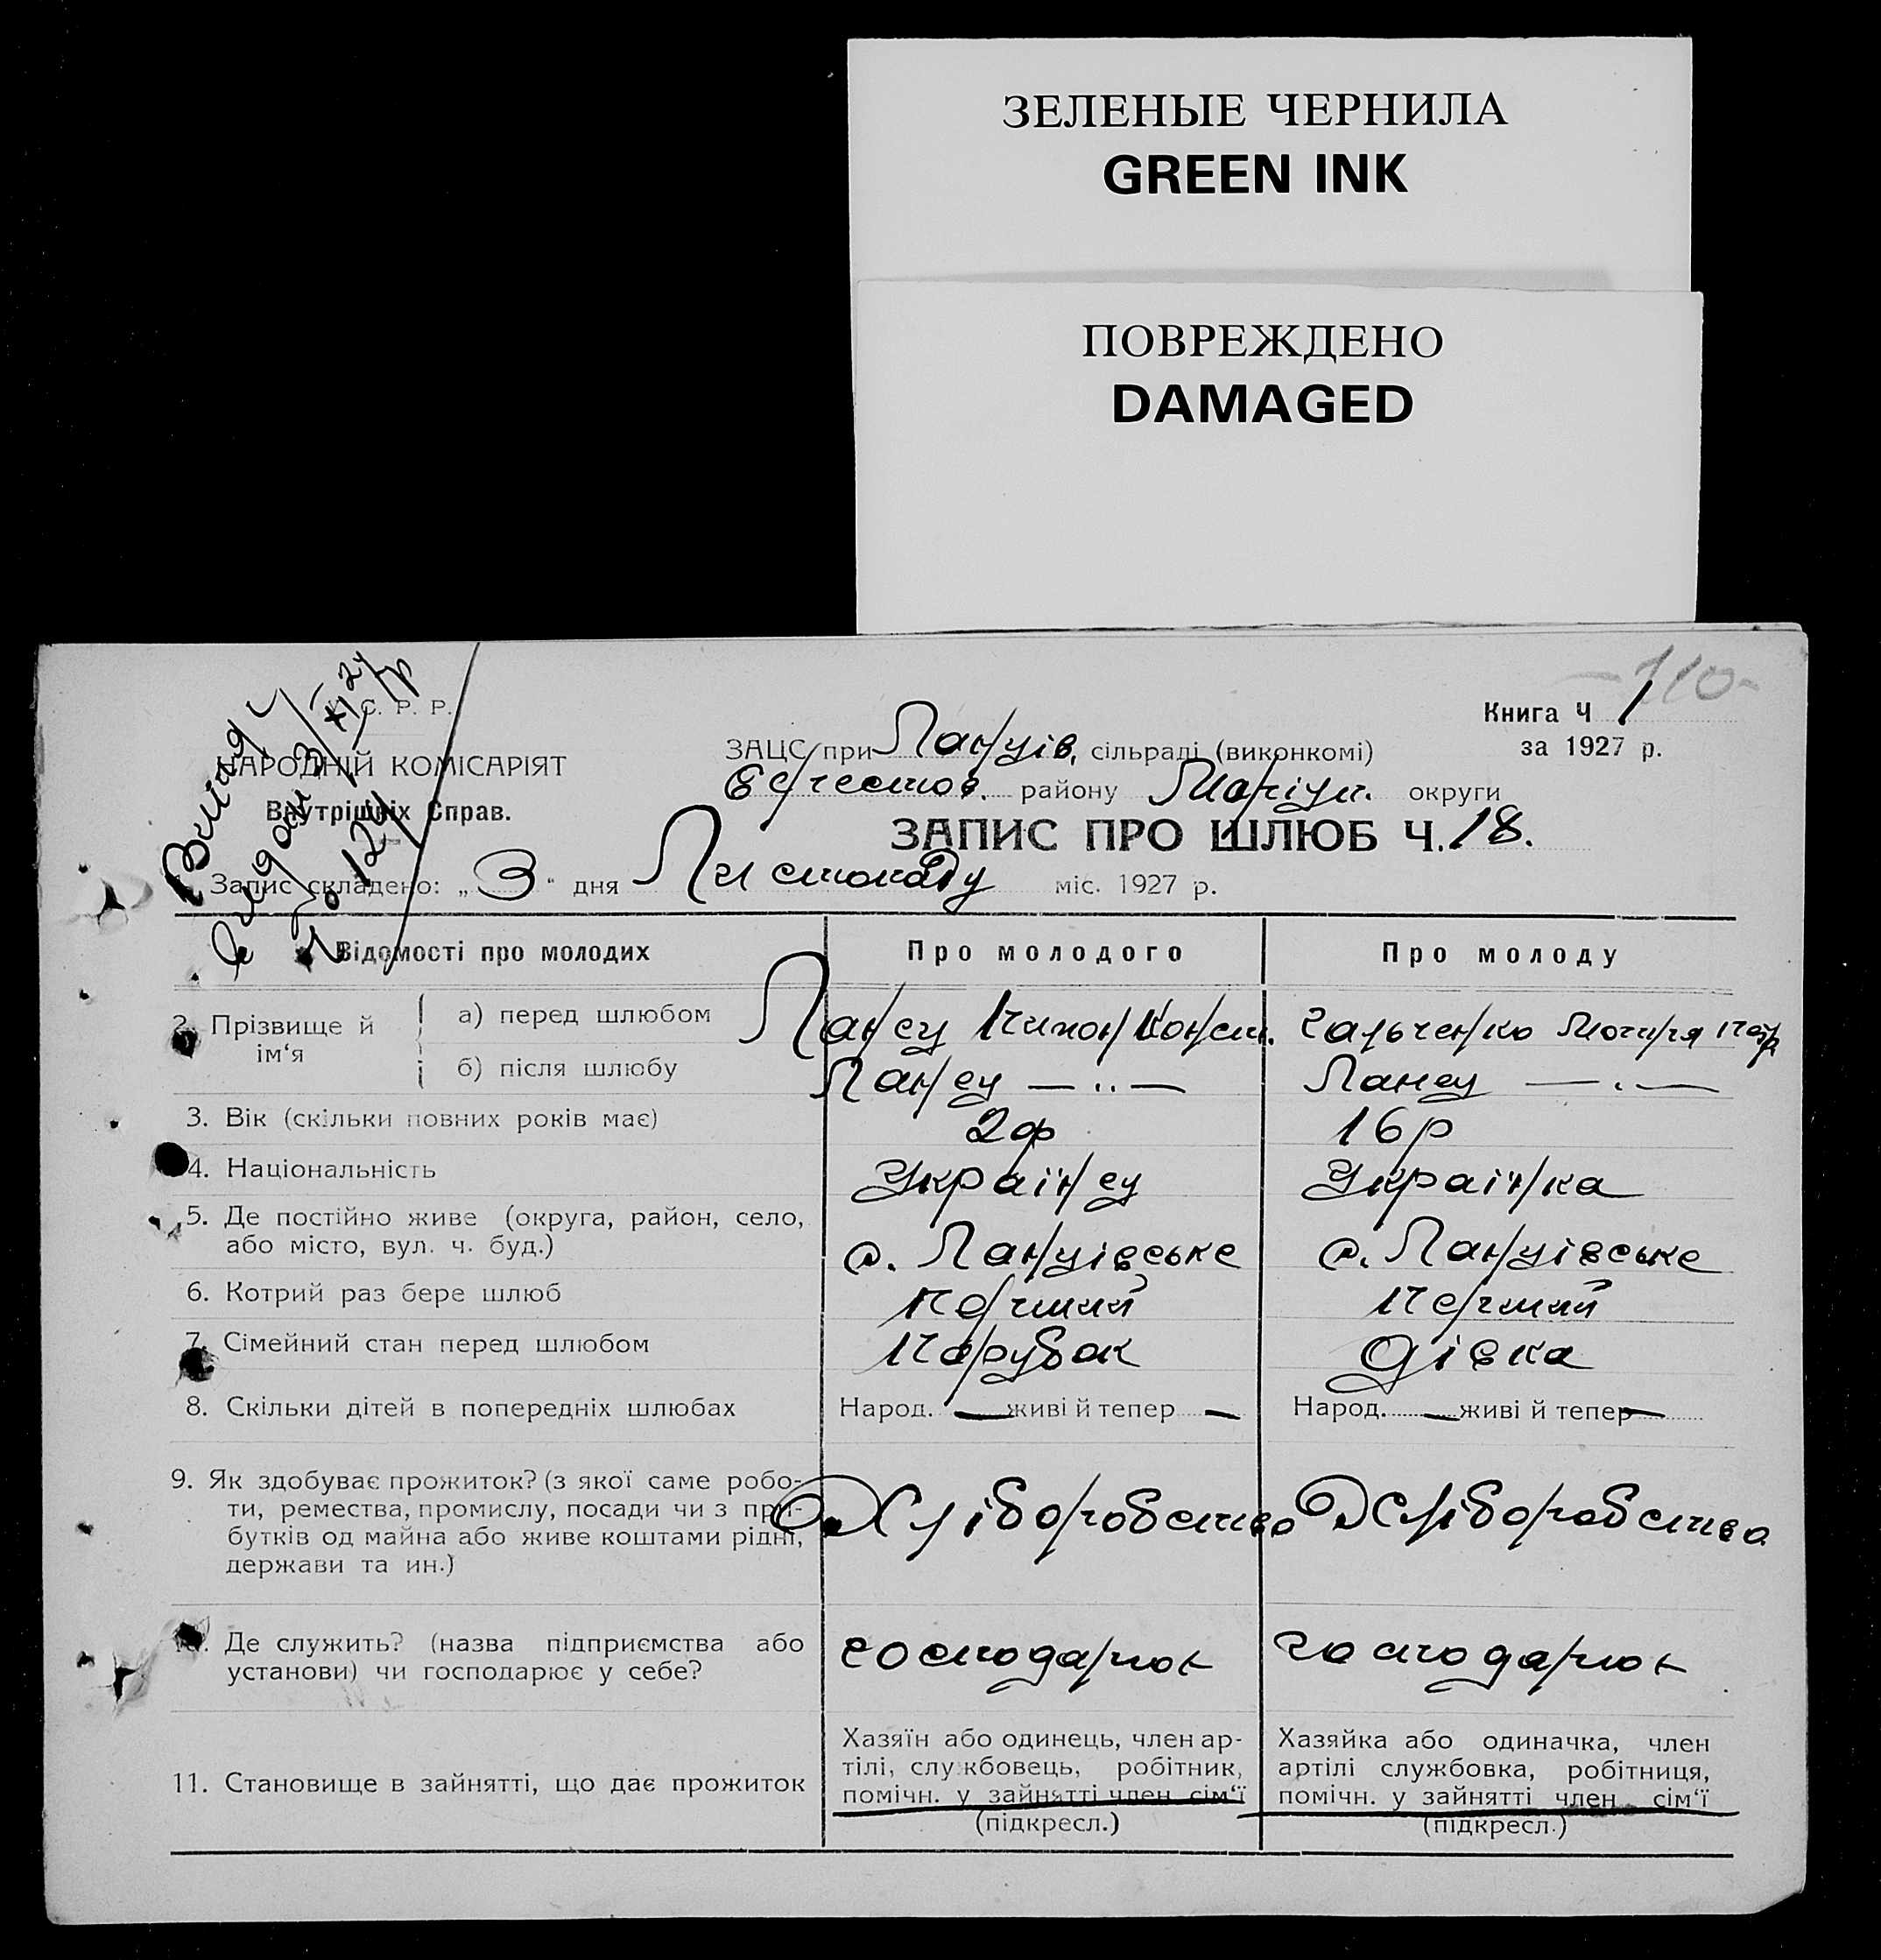 ЗЕЛЕНЫЕ ЧЕРНИЛА
GREEN INK
ПОВРЕЖДЕНО
DAMAGED
110
С. Р. Р.
НАРОДНІЙ КОМІСАРІЯТ
Внутрішніх Справ.
Книга Ч 1
за 1927 р.
ЗАЦС при Ланців. сільраді (виконкомі)
району Маріуп. округи
ЗАПИС ПРО ШЛЮБ Ч. 18.
Запис складено: „3" дня Листопаду міс. 1927 р.
Відомості про молодих Про молодого Про молоду
2. Прізвище й ім'я а) перед шлюбом
б) після шлюбу
3. Вік (скільки повних років має) 16 р
4. Національність Украінец Украінка
5. Де постійно живе (округа, район, село,
або місто, вул. ч. буд.) с. Ланцівське с. Ланцівське
6. Котрий раз бере шлюб перший перший
7. Сімейний стан перед шлюбом парубок дівка
8. Скільки дітей в попередніх шлюбах Народ. — живі й тепер — Народ. — живі й тепер —
9. Як здобуває прожиток? (з якої саме робо-
ти, ремества, промислу, посади чи з при-
бутків од майна або живе коштами рідні,
держави та ин.) Хліборобство Хліборобство
Де служить? (назва підприємства або
установи) чи господарює у себе? господарює господарює
11. Становище в зайнятті, що дає прожиток
Хазяїн або одинець, член ар-
тілі, службовець, робітник,
помічн. у зайнятті член сім'ї
(підкресл.)
Хазяйка або одиначка, член
артілі службовка, робітниця,
помічн. у зайнятті член сім'ї
(підкресл.)